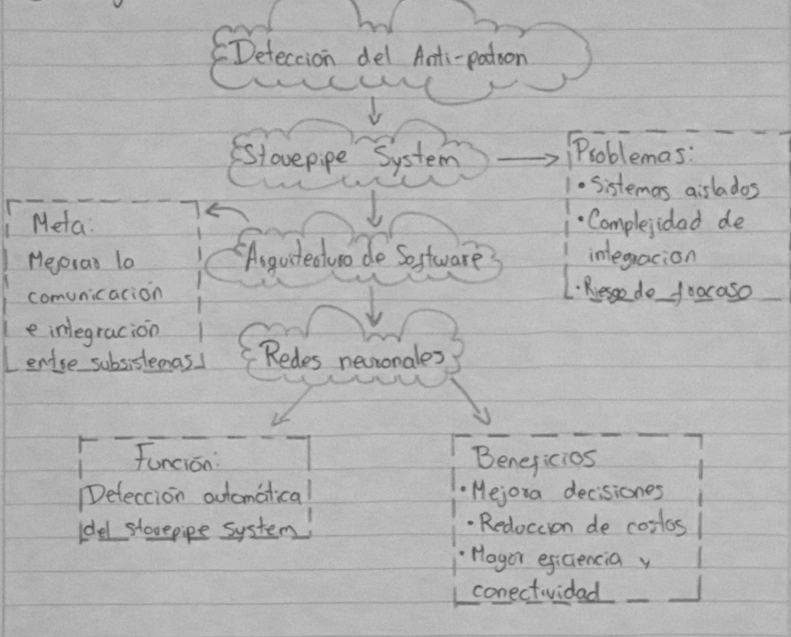 Detección del Anti-patron
Stovepipe System
Problemas:
• Sistemas aislados
• Complejidad de
integracion
• Riesgo de fracaso
Meta:
Mejorar la
comunicación
e integración
entre subsistemas
Arquitectura de Software
Redes neuronales
Función:
Detección automática
del stovepipe system
Beneficios
• Mejora decisiones
• Reduccion de costos
• Mayor eficiencia y
conectividad